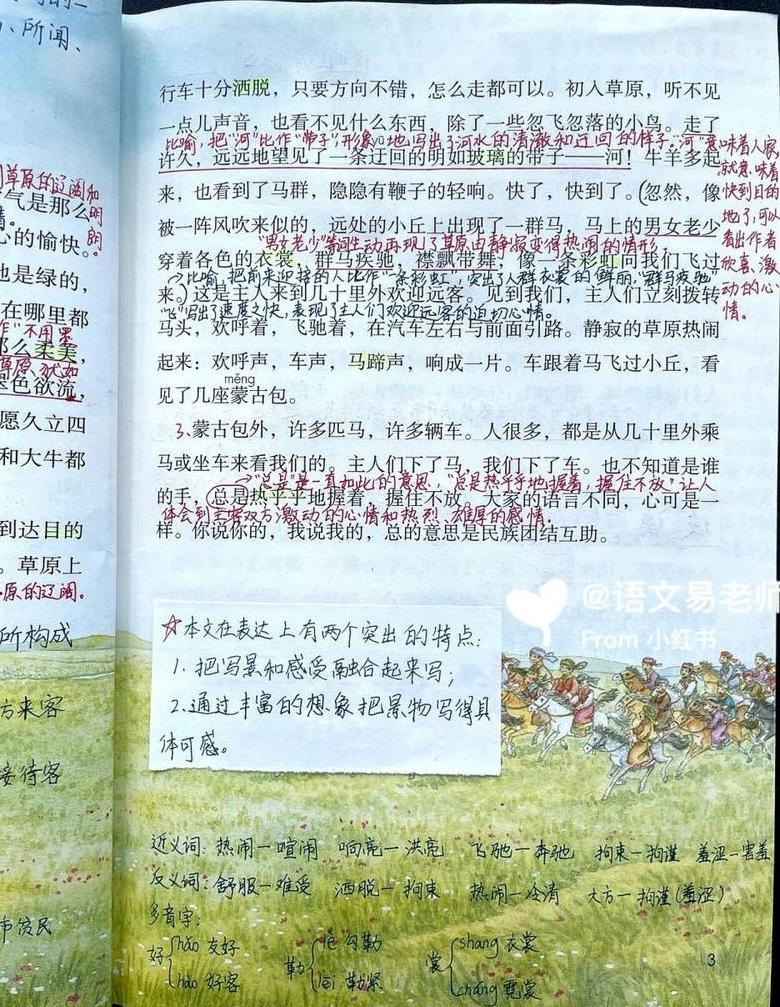 、所闻、
草原的辽阔和
气是那么
明朗。
心的愉快。
也是绿的，
在哪里都
不用墨
那么柔美，
翠色欲流，
愿久立四
和大牛都
到达目的
。草原上
原的辽阔。
所构成
方来客
接待客
行车十分洒脱，只要方向不错，怎么走都可以。初入草原，听不见
一点儿声音，也看不见什么东西，除了一些忽飞忽落的小鸟。走了
比喻，把"河"比作"带子"，形象地写出了河水的清澈和迂回的样子。"河"意味着人家，就意味着快到目的地了，可以看出作者欣喜、激动的心情。
许久，远远地望见了一条迂回的明如玻璃的带子——河！牛羊多起
来，也看到了马群，隐隐有鞭子的轻响。快了，快到了。（忽然，像
被一阵风吹来似的，远处的小丘上出现了一群马，马上的男女老少
"男女老少"等词生动再现了草原由静寂变得热闹的情形。
穿着各色的衣裳，群马疾驰，襟飘带舞，像一条彩虹向我们飞过
比喻，把前来迎接的人比作"一条彩虹"，突出了人群衣裳的鲜丽，"群马疾驰"
来。）这是主人来到几十里外欢迎远客。见到我们，主人们立刻拨转
"飞"写出了速度之快，表现了主人们欢迎远客的迫切心情。
马头，欢呼着，飞驰着，在汽车左右与前面引路。静寂的草原热闹
起来：欢呼声，车声，马蹄声，响成一片。车跟着马飞过小丘，看
měng
见了几座蒙古包。
3、蒙古包外，许多匹马，许多辆车。人很多，都是从几十里外乘
马或坐车来看我们的。主人们下了马，我们下了车。也不知道是谁
"总是"是一直如此的意思，"总是热乎乎地握着，握住不放"让人
的手，总是热乎乎地握着，握住不放。大家的语言不同，心可是一
体会到主客双方激动的心情和热烈、雄厚的感情。
样。你说你的，我说我的，总的意思是民族团结互助。
@语文易老师
From 小红书
☆本文在表达上有两个突出的特点：
1. 把写景和感受融合起来写；
2. 通过丰富的想象把景物写得具
体可感。
近义词：热闹—喧闹 响亮—洪亮 飞驰—奔驰 拘束—拘谨 羞涩—害羞
反义词：舒服—难受 洒脱—拘束 热闹—冷清 大方—拘谨（羞涩）
多音字：
好 hǎo 友好 hào 好客
勒 lè 勾勒 lēi 勒紧
裳 shang 衣裳 cháng 霓裳
3